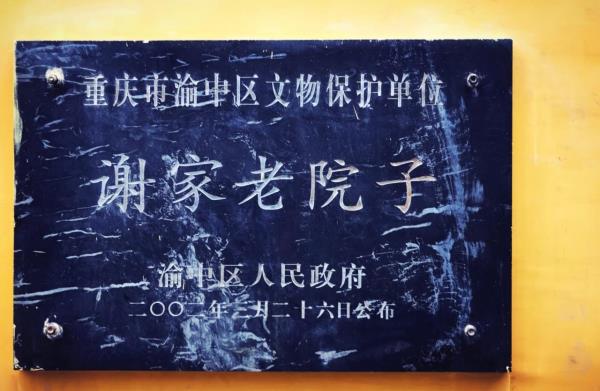 重庆市渝中区文物保护单位
谢家老院子
渝中区人民政府
二〇〇二年三月二十六日公布